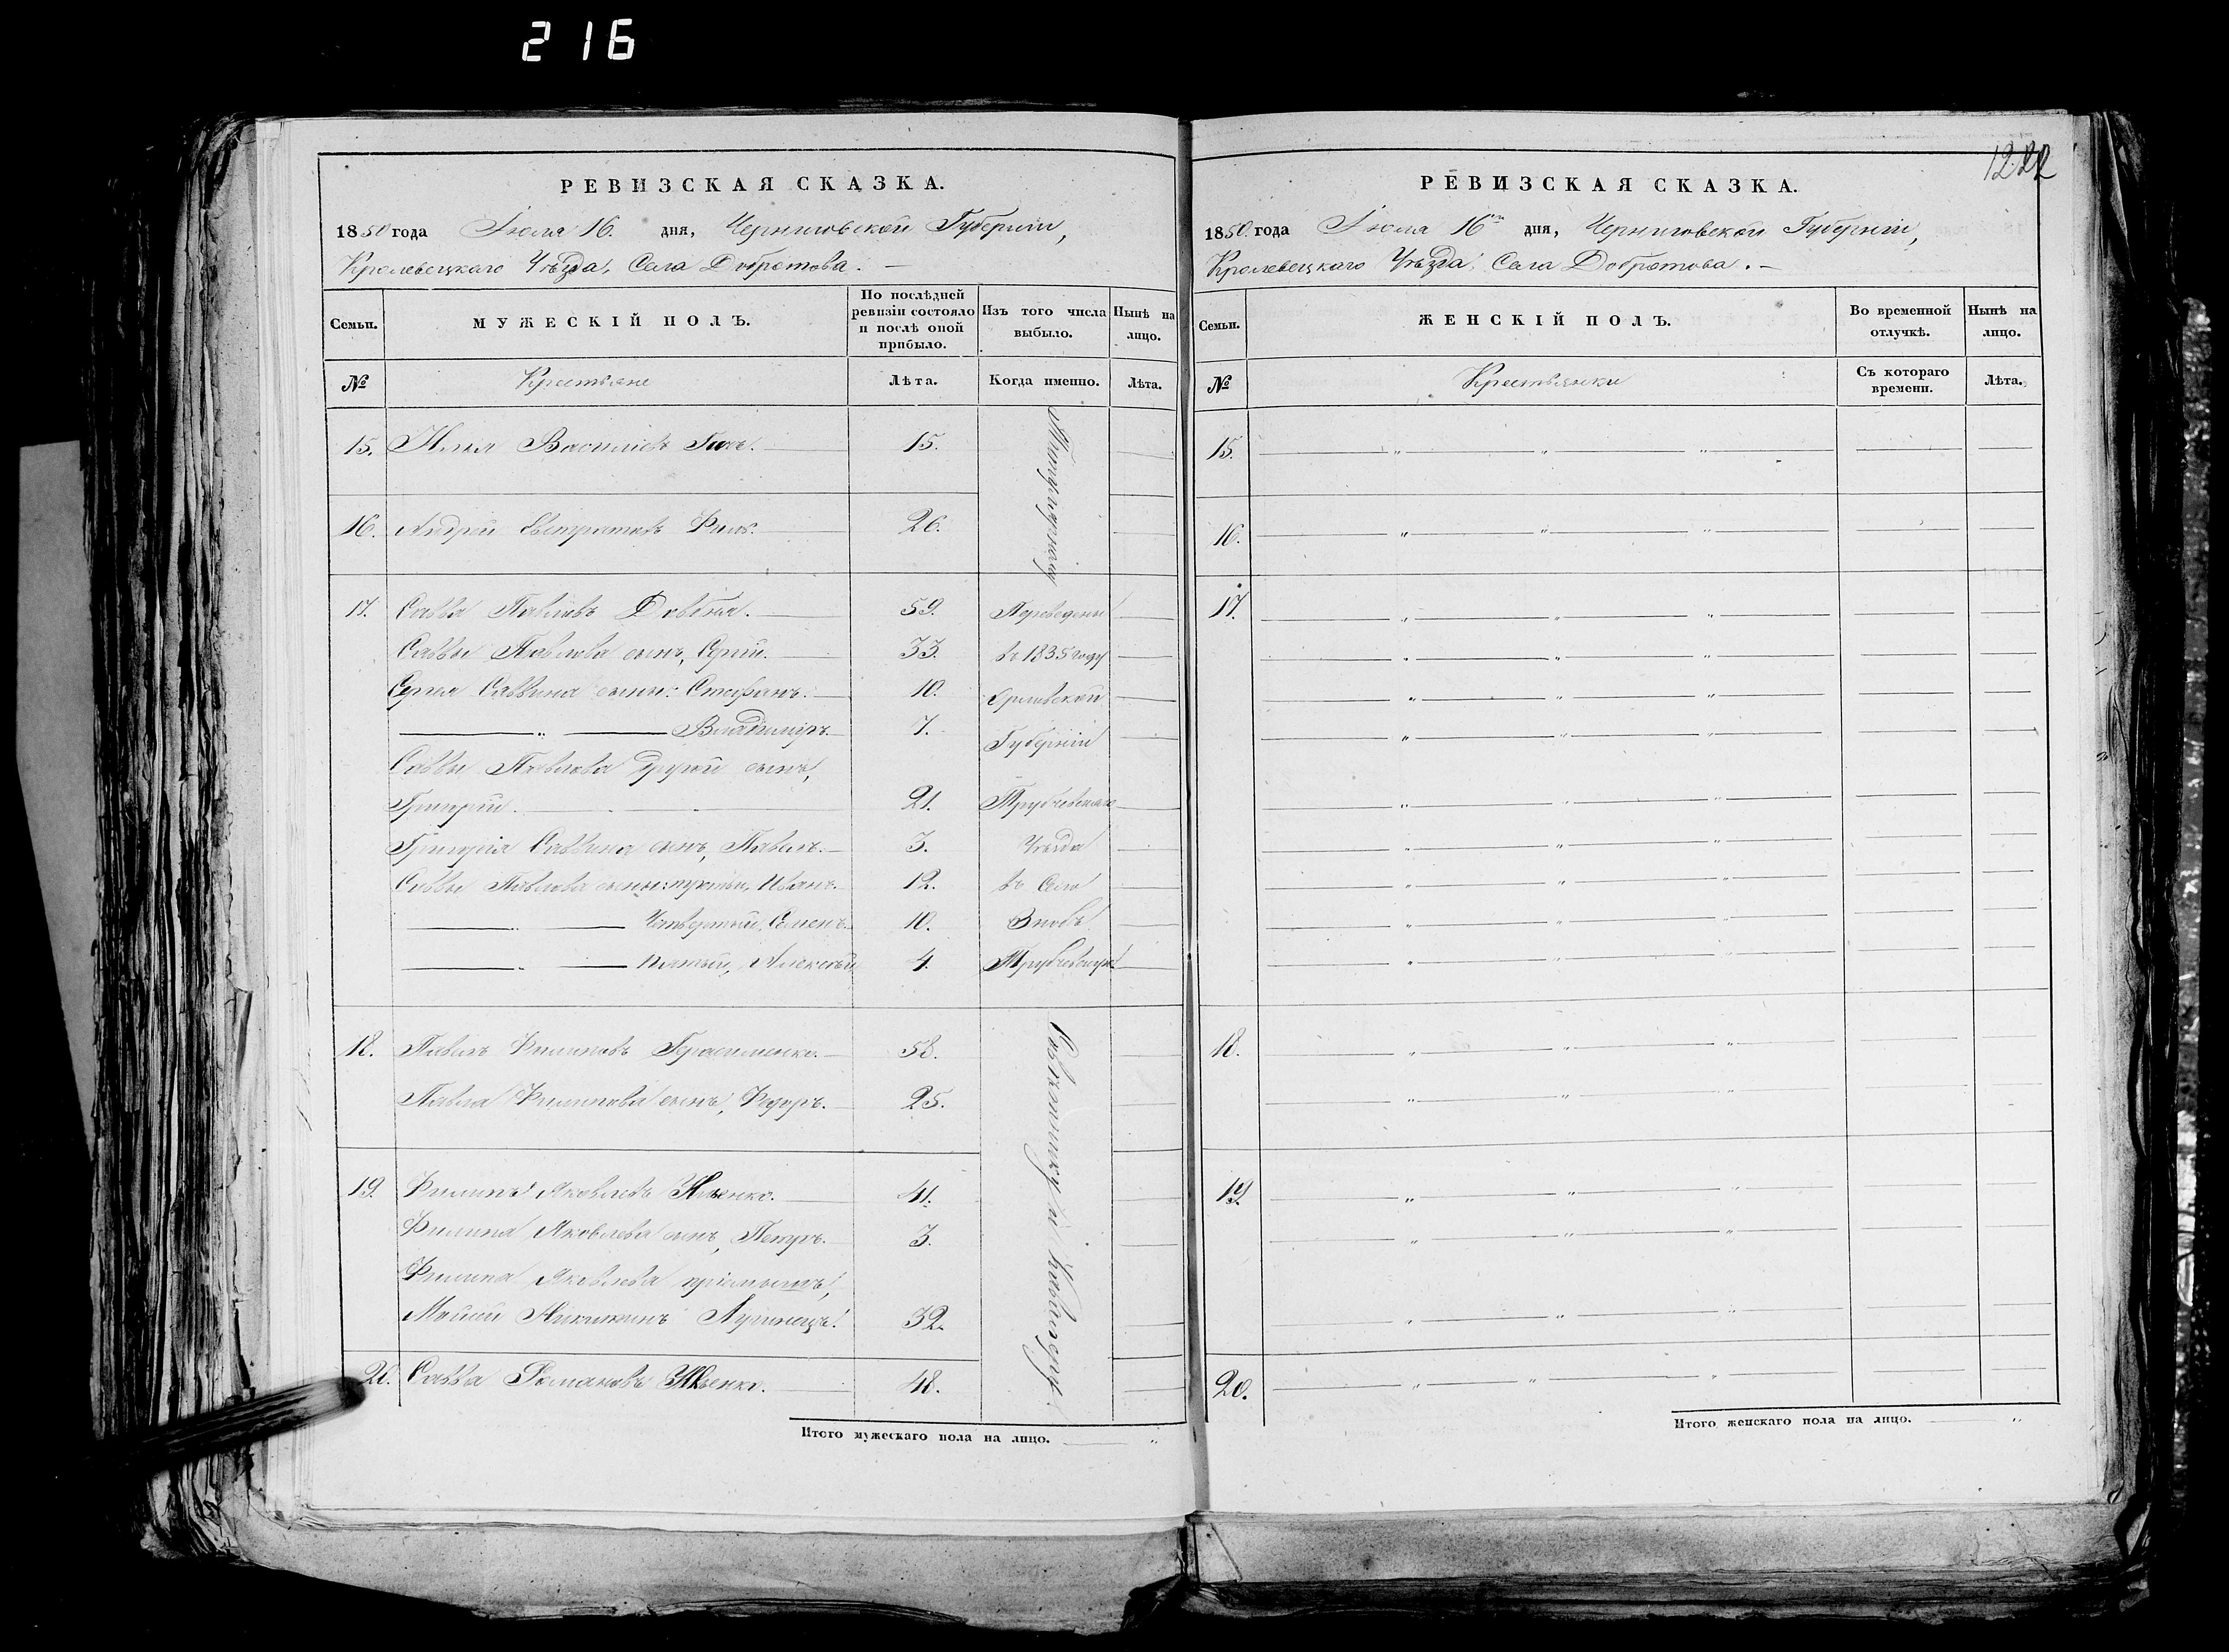 216
РЕВИЗСКАЯ СКАЗКА.
1850 года Іюля 16. дня, Черниговской Губерніи,
Кролевецкаго Уѣзда, Села Добротова.
Семьи.
МУЖЕСКІЙ ПОЛЪ.
По послѣдней ревизіи состояло и послѣ оной прибыло.
Изъ того числа выбыло.
Нынѣ на лицо.
№
Крестьяне
Лѣта.
Когда именно.
Лѣта.
15. Васильевъ 15.
16. Андрей Евстратовъ 26.
17. Савва Павловъ 59. Переведены
Саввы Павлова сынъ, Сергій. 33. въ 1835 году
Сергія Саввина сыны: Стефанъ. 10. Орловской
" Владиміръ. 7. Губерніи
Саввы Павлова другой сынъ,
Григорій. 21. Трубчевскаго
Григорія Саввина сынъ, Павелъ. 3. Уѣзда
Саввы Павлова сыны: третій, Иванъ. 12. въ Село
" Четвертый, Семенъ. 10. Знобь
" пятый, Алексѣй. 4. Трубчевскую
18. Павелъ Филиповъ Герасименко. 58.
Павла Филипова сынъ, Федоръ. 25.
19. Филипъ Яковлевъ 41.
Филипа Яковлева сынъ, Петръ. 3.
Филипа Яковлева пріемышъ,
Моисей 32.
20. Савва Романовъ 48.
Итого мужескаго пола на лицо. "
1222
РЕВИЗСКАЯ СКАЗКА.
1850 года Іюля 16 дня, Черниговской Губерніи,
Кролевецкаго Уѣзда, Села Добротова.
Семьи.
ЖЕНСКІЙ ПОЛЪ.
Во временной отлучкѣ.
Нынѣ на лицо.
№
Крестьянки
Съ котораго времени.
Лѣта.
15.
16.
17.
18.
19.
20.
Итого женскаго пола на лицо. "